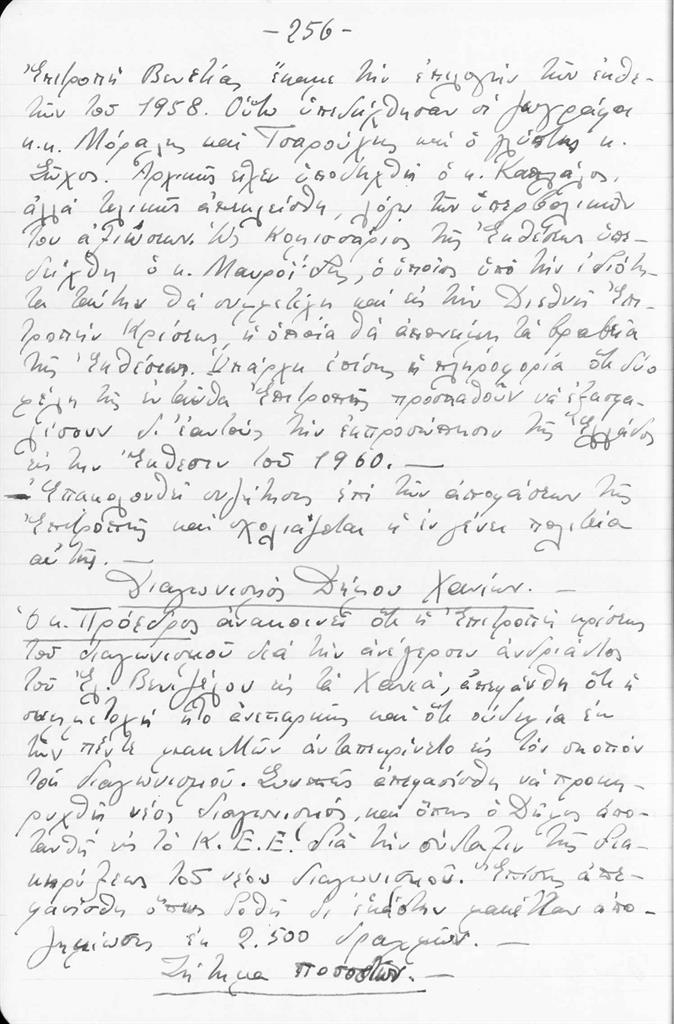 -256-
Ἐπιτροπὴ Βενετίας ἔκαμε τὴν ἐπιλογὴν τῶν ἐκθε-
τῶν τοῦ 1958. Οὕτω ὑπεδείχθησαν οἱ ζωγράφοι
κ.κ. Μόραλης καὶ Τσαρούχης καὶ ὁ γλύπτης κ.
Σῶχος. Ἀρχικῶς εἶχεν ὑποδειχθῆ ὁ κ. Καπράλος,
ἀλλὰ τελικῶς ἀπεκλείσθη, λόγῳ τῶν ὑπερβολικῶν
του ἀξιώσεων. Ὡς Κομισσάριος τῆς Ἐκθέσεως ὑπε-
δείχθη ὁ κ. Μαυροΐδης, ὁ ὁποῖος ὑπὸ τὴν ἰδιότη-
τα ταύτην θὰ συμμετέχη καὶ εἰς τὴν Διεθνῆ Ἐπι-
τροπὴν Κρίσεως, ἡ ὁποία θὰ ἀπονείμη τὰ βραβεῖα
τῆς Ἐκθέσεως. Ὑπάρχει ἐπίσης ἡ πληροφορία ὅτι δύο
μέλη τῆς ἐνταῦθα Ἐπιτροπῆς προσπαθοῦν νὰ ἐξασφα-
λίσουν δι' ἑαυτοὺς τὴν ἐκπροσώπησιν τῆς Ἑλλάδος
εἰς τὴν Ἔκθεσιν τοῦ 1960. —
- Ἐπακολουθεῖ συζήτησις ἐπὶ τῶν ἀποφάσεων τῆς
Ἐπιτροπῆς καὶ σχολιάζεται ἡ ἐν γένει πολιτεία
αὐτῆς. —
Διαγωνισμὸς Δήμου Χανίων. —
Ὁ κ. Πρόεδρος ἀνακοινεῖ ὅτι ἡ Ἐπιτροπὴ κρίσεως
τοῦ διαγωνισμοῦ διὰ τὴν ἀνέγερσιν ἀνδριάντος
τοῦ Ἐλ. Βενιζέλου εἰς τὰ Χανιά, ἀπεφάνθη ὅτι ἡ
συμμετοχὴ ἦτο ἀνεπαρκὴς καὶ ὅτι οὐδεμία ἐκ
τῶν πέντε μακεττῶν ἀνταπεκρίνετο εἰς τὸν σκοπὸν
τοῦ διαγωνισμοῦ. Συνεπῶς ἀπεφασίσθη νὰ προκη-
ρυχθῆ νέος διαγωνισμός, καὶ ὅπως ὁ Δῆμος ἀπο-
τανθῆ εἰς τὸ Κ.Ε.Ε. διὰ τὴν σύνταξιν τῆς δια-
κηρύξεως τοῦ νέου διαγωνισμοῦ. Ἐπίσης ἀπε-
φασίσθη ὅπως δοθῆ δι' ἑκάστην μακέτταν ἀπο-
ζημίωσις ἐκ 2.500 δραχμῶν. —
Ζήτημα ποσοστῶν. —